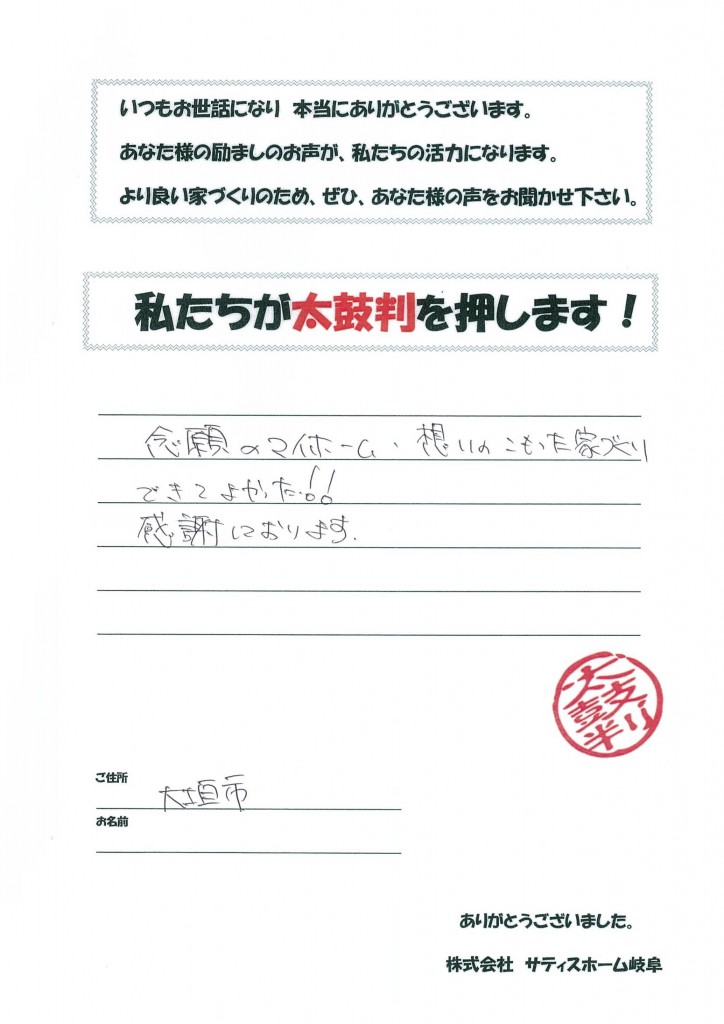 いつもお世話になり 本当にありがとうございます。
あなた様の励ましのお声が、私たちの活力になります。
より良い家づくりのため、ぜひ、あなた様の声をお聞かせ下さい。
私たちが太鼓判を押します！
念願のマイホーム、想いのこもった家づくり
できてよかった!!
感謝しております.
太鼓判
ご住所
大垣市
お名前
ありがとうございました。
株式会社 サティスホーム岐阜